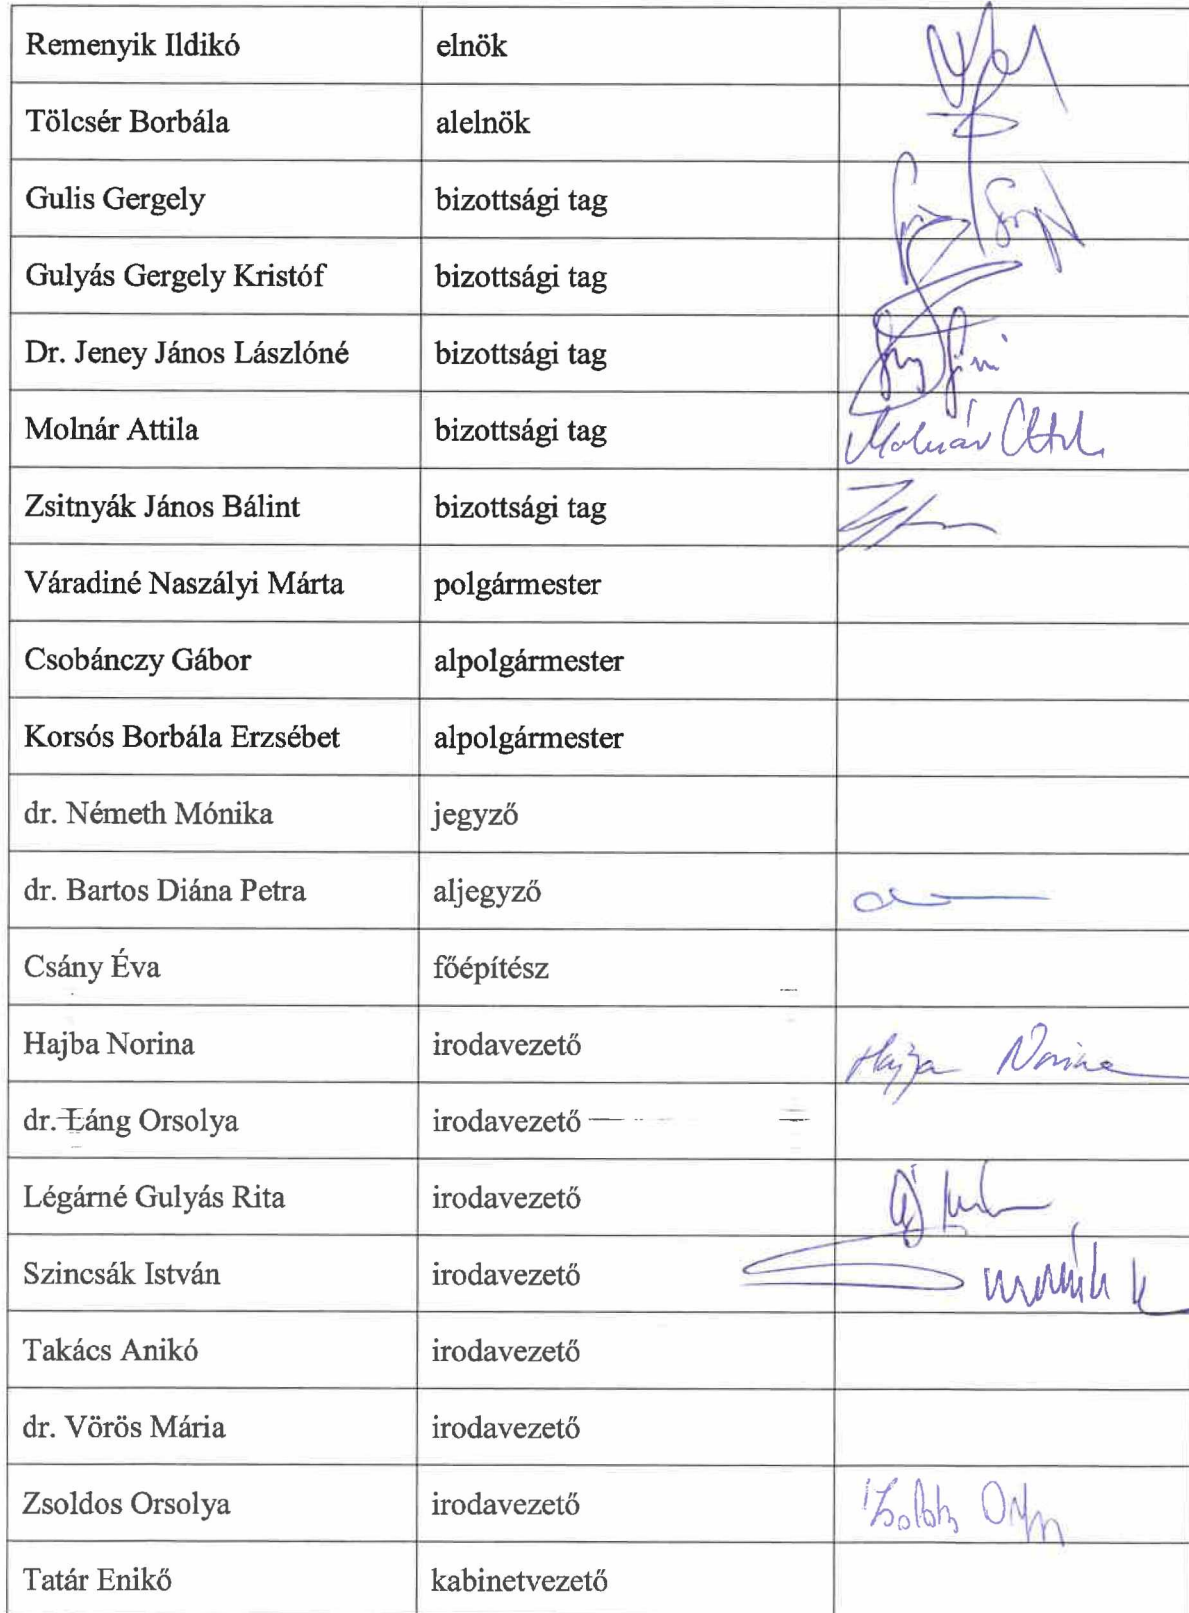 Remenyik Ildikó elnök
Tölcsér Borbála alelnök
Gulis Gergely bizottsági tag
Gulyás Gergely Kristóf bizottsági tag
Dr. Jeney János Lászlóné bizottsági tag
Molnár Attila bizottsági tag Molnár
Zsitnyák János Bálint bizottsági tag
Váradiné Naszályi Márta polgármester
Csobánczy Gábor alpolgármester
Korsós Borbála Erzsébet alpolgármester
dr. Németh Mónika jegyző
dr. Bartos Diána Petra aljegyző
Csány Éva főépítész
Hajba Norina irodavezető Hajba Norina
dr. Láng Orsolya irodavezető
Légárné Gulyás Rita irodavezető
Szincsák István irodavezető
Takács Anikó irodavezető
dr. Vörös Mária irodavezető
Zsoldos Orsolya irodavezető
Tatár Enikő kabinetvezető